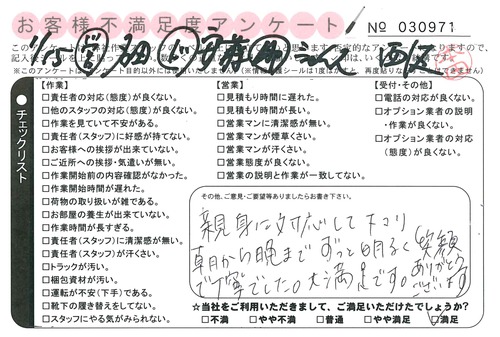 お客様不満足度アンケート
No 030971
チェックリスト
【作業】
□責任者の対応(態度)が良くない。
□他のスタッフの対応(態度)が良くない。
□作業を見ていて不安がある。
□責任者(スタッフ)に好感が持てない。
□お客様への挨拶が出来ていない。
□ご近所への挨拶・気遣いが無い。
□作業開始前の内容確認がなかった。
□作業開始時間が遅れた。
□荷物の取り扱いが雑である。
□お部屋の養生が出来ていない。
□作業時間が長すぎる。
□責任者(スタッフ)に清潔感が無い。
□責任者(スタッフ)が汗くさい。
□トラックが汚い。
□梱包資材が汚い。
□運転が不安(下手)である。
□靴下の履き替えをしてない。
□スタッフにやる気がみられない。
【営業】
□見積もり時間に遅れた。
□見積もり時間が長い。
□営業マンに清潔感が無い。
□営業マンが煙草くさい。
□営業マンが汗くさい。
□営業態度が良くない。
□営業の説明と作業が一致してない。
【受付・その他】
□電話の対応が良くない。
□オプション業者の説明
・作業が良くない。
□オプション業者の対応
(態度)が良くない。
その他、ご意見・ご要望等ありましたらお書き下さい。
親身に対応して下さり
朝から晩まで ずっと明るく笑顔
で丁寧でした。大満足です。
ありがとう
ございます
☆当社をご利用いただきまして、ご満足いただけたでしょうか?
□不満 □やや不満 □普通 □やや満足 □満足